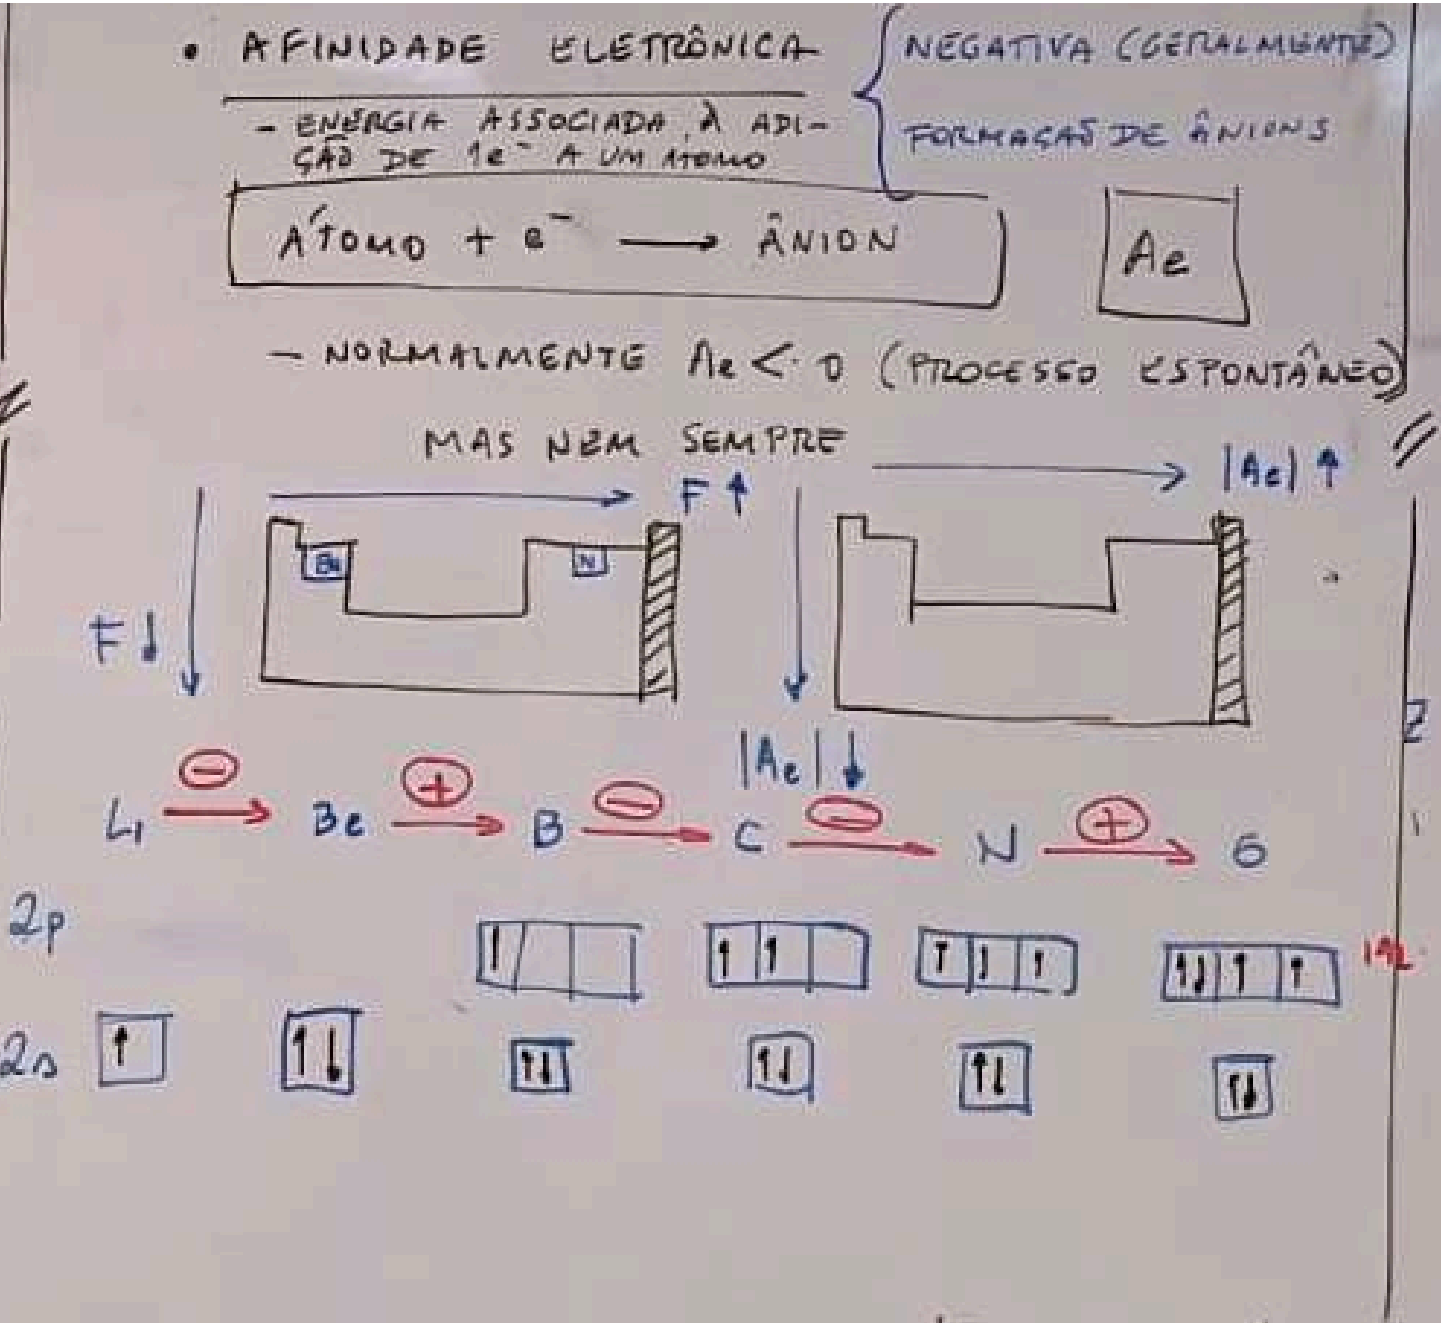 • AFINIDADE ELETRÔNICA
NEGATIVA (GERALMENTE)
FORMAÇÃO DE ÂNIONS
- ENERGIA ASSOCIADA À ADI-
ÇÃO DE 1e⁻ A UM ÁTOMO
ÁTOMO + e⁻ → ÂNION
Ae
- NORMALMENTE Ae < 0 (PROCESSO ESPONTÂNEO)
MAS NEM SEMPRE
F ↑
|Ae| ↑
Be
N
F ↓
|Ae| ↓
⊖ ⊕ ⊖ ⊖ ⊕
Li → Be → B → C → N → O
2p
↑ ↑ ↑ ↑ ↑ ↑ ↑↓ ↑ ↑
2s ↑ ↑↓ ↑↓ ↑↓ ↑↓ ↑↓